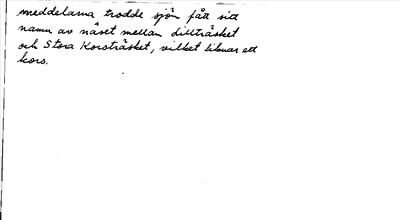 meddelarna trodde sjön fått sitt
namn av näset mellan Lillträsket
och Stora Korsträsket, vilket liknar ett
kors.